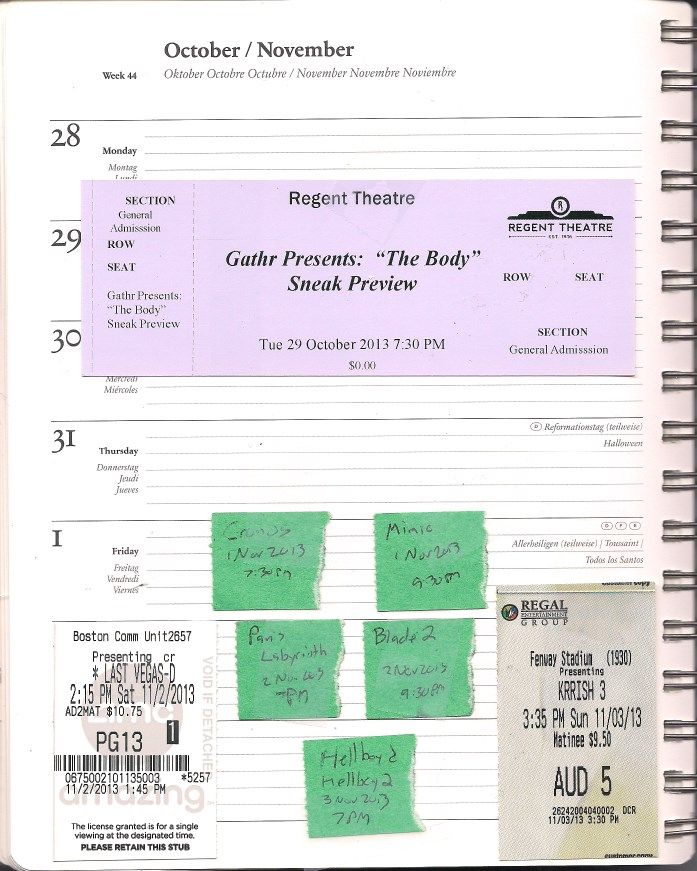 October / November
Week 44
Oktober Octobre Octubre / November Novembre Noviembre
28
Monday
Montag
Lundi
SECTION
General
Admisssion
ROW
SEAT
Gathr Presents:
“The Body”
Sneak Preview
Regent Theatre
Gathr Presents: “The Body”
Sneak Preview
Tue 29 October 2013 7:30 PM
$0.00
R
REGENT THEATRE
EST. 1916
ROW SEAT
SECTION
General Admisssion
29
30
Mercredi
Miércoles
31
Thursday
Donnerstag
Jeudi
Jueves
D Reformationstag (teilweise)
Halloween
1
Friday
Freitag
Vendredi
Viernes
D F E
Allerheiligen (teilweise) | Toussaint |
Todos los Santos
Cronos
1 Nov 2013
7:30PM
Mimic
1 Nov 2013
9:30PM
Pan's
Labyrinth
2 Nov 2013
7PM
Blade 2
2 Nov 2013
9:30PM
Hellboy 2
Hellboy 2
3 Nov 2013
7PM
Boston Comm Unit2657
Presenting cr
* LAST VEGAS-D
2:15 PM Sat 11/2/2013
AD2MAT $10.75
PG13 1
0675002101135003 *5257
11/2/2013 1:45 PM
amazing
VOID IF DETACHED
The license granted is for a single
viewing at the designated time.
PLEASE RETAIN THIS STUB
customer copy
REGAL
ENTERTAINMENT
GROUP
Fenway Stadium (1930)
Presenting
KRRISH 3
3:35 PM Sun 11/03/13
Matinee $9.50
AUD 5
26242004040002 DCR
11/03/13 3:30 PM
customer copy